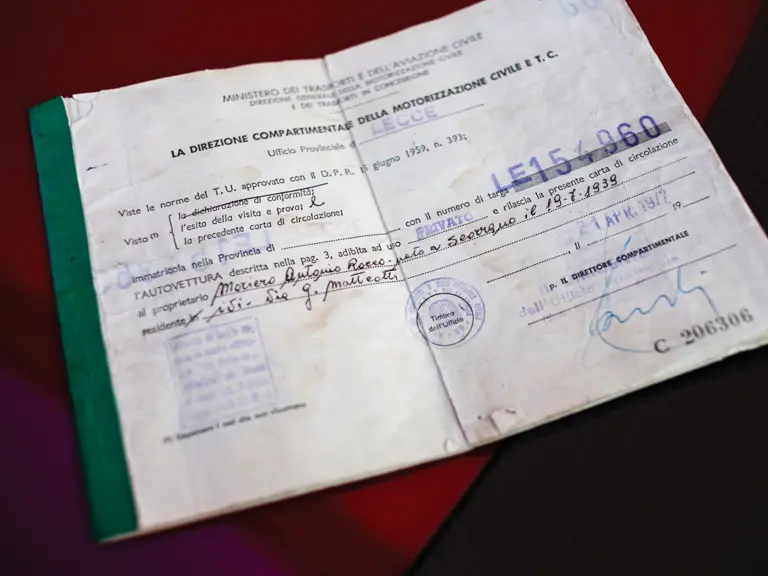 MINISTERO DEI TRASPORTI E DELL'AVIAZIONE CIVILE
DIREZIONE GENERALE DELLA MOTORIZZAZIONE CIVILE
E DEI TRASPORTI IN CONCESSIONE
LA DIREZIONE COMPARTIMENTALE DELLA MOTORIZZAZIONE CIVILE E T. C.
Ufficio Provinciale d LECCE
Viste le norme del T. U. approvato con il D. P. R. 15 giugno 1959, n. 393;
Visto (1)
la dichiarazione di conformità;
l'esito della visita e prova;
la precedente carta di circolazione;
immatricola nella Provincia di con il numero di targa LE154960
l'AUTOVETTURA descritta nella pag. 3, adibita ad uso PRIVATO e rilascia la presente carta di circolazione
al proprietario Antonio Rocco nato a Scorrano il 19-7-1939
residente Via G. Matteotti
, li 19
21 APR. 197
p. IL DIRETTORE COMPARTIMENTALE
Timbro
dell'Ufficio
C 206306